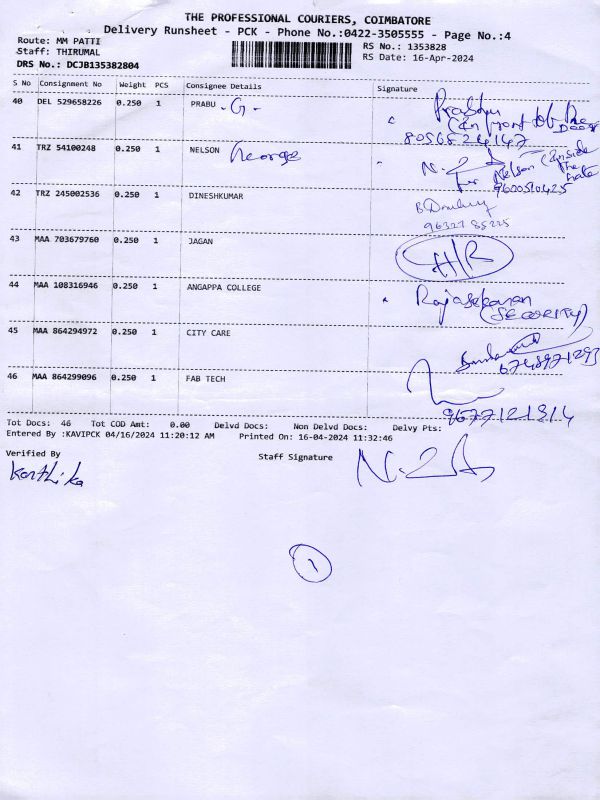 THE PROFESSIONAL COURIERS, COIMBATORE
Delivery Runsheet - PCK - Phone No.:0422-3505555 - Page No.:4
Route: MM PATTI
Staff: THIRUMAL
DRS No.: DCJB135382804
RS No.: 1353828
RS Date: 16-Apr-2024
S No Consignment No Weight PCS Consignee Details Signature
40 DEL 529658226 0.250 1 PRABU - G - Prabhu
(In front of the Door)
8056824147
41 TRZ 54100248 0.250 1 NELSON George
for Nelson (Inside the Gate)
9600510425
42 TRZ 245002536 0.250 1 DINESHKUMAR
43 MAA 703679760 0.250 1 JAGAN H/R
44 MAA 108316946 0.250 1 ANGAPPA COLLEGE Rajasekaran
(SECURITY)
45 MAA 864294972 0.250 1 CITY CARE
46 MAA 864299096 0.250 1 FAB TECH
9677121314
Tot Docs: 46 Tot COD Amt: 0.00 Delvd Docs: Non Delvd Docs: Delvy Pts:
Entered By :KAVIPCK 04/16/2024 11:20:12 AM Printed On: 16-04-2024 11:32:46
Verified By Staff Signature
Karthika
1